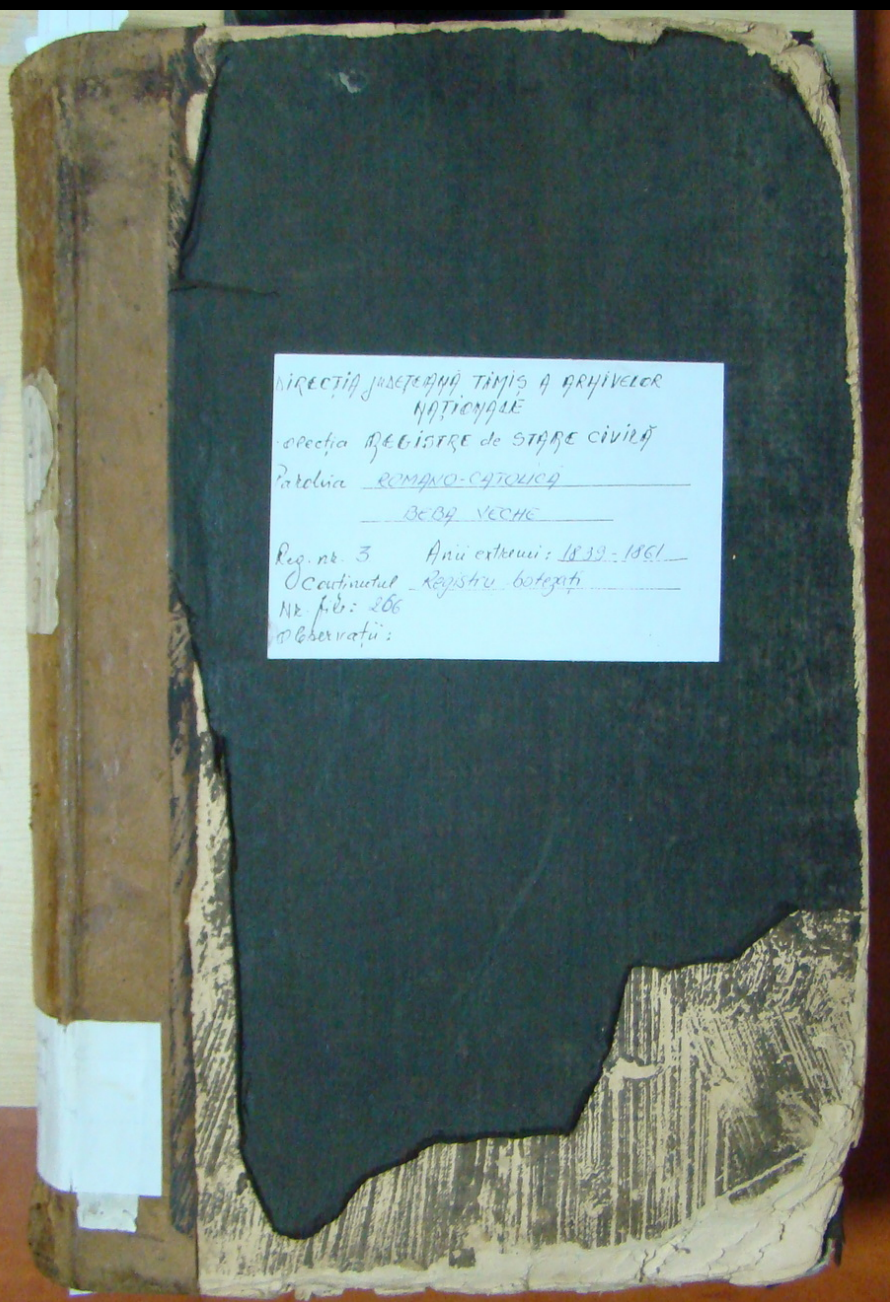 DIRECȚIA JUDEȚEANĂ TIMIȘ A ARHIVELOR
NAȚIONALE
Colecția REGISTRE de STARE CIVILĂ
Parohia ROMANO-CATOLICĂ
BEBA VECHE
Reg. nr. 3 Anii extremi: 1839-1861
Conținutul Registru botezați
Nr. file: 266
Observații: